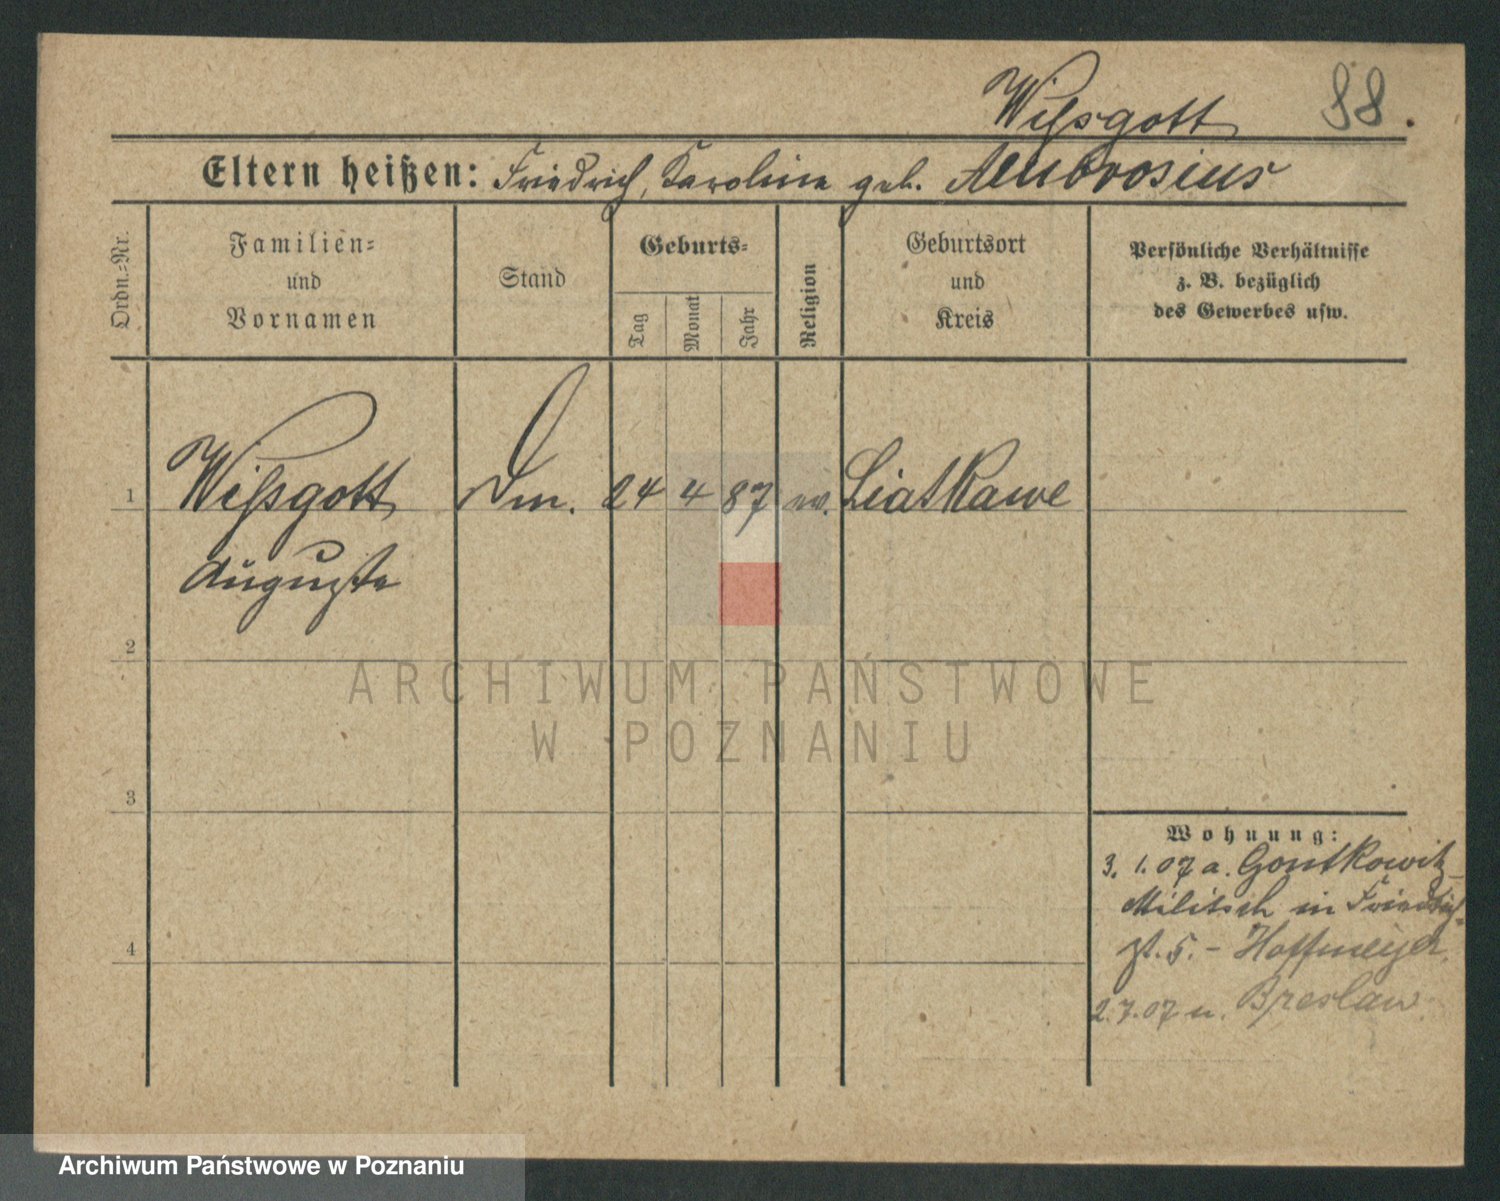 Wißgott 88.
Eltern heißen: Friedrich, Karoline geb. Ambrosius
Ordn.-Nr.
Familien-
und
Vornamen
Stand
Geburts-
Tag
Monat
Jahr
Religion
Geburtsort
und
Kreis
Persönliche Verhältnisse
z. B. bezüglich
des Gewerbes usw.
1 Wißgott Dm. 24 4 87 ev. Liatkawe
Auguste
2
ARCHIWUM PAŃSTWOWE
W POZNANIU
3
Wohnung:
3. 1. 07 a. Gontkowitz
Militsch in Friedrich-
st. 5. - Hoffmeyer.
4
2.7.07 n. Breslau.
Archiwum Państwowe w Poznaniu